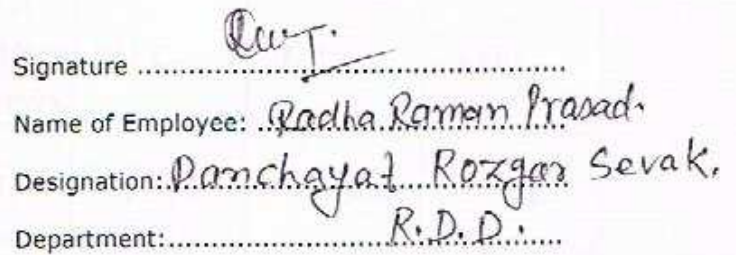 Signature ..........................................................
Name of Employee: Radha Raman Prasad.
Designation: Panchayat Rozgar Sevak.
Department: R.D.D.